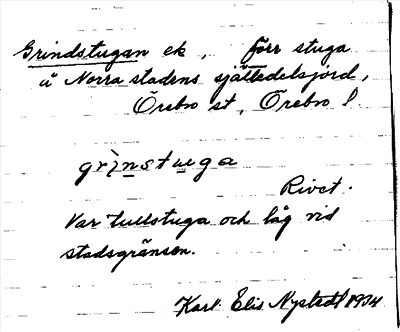 Grindstugan ek, förr stuga
å Norra stadens sjättedelsjord,
Örebro st, Örebro l
grinstuga
Rivet.
Var tullstuga och låg vid
stadsgränsen.
Karl Elis Nystedt 1934